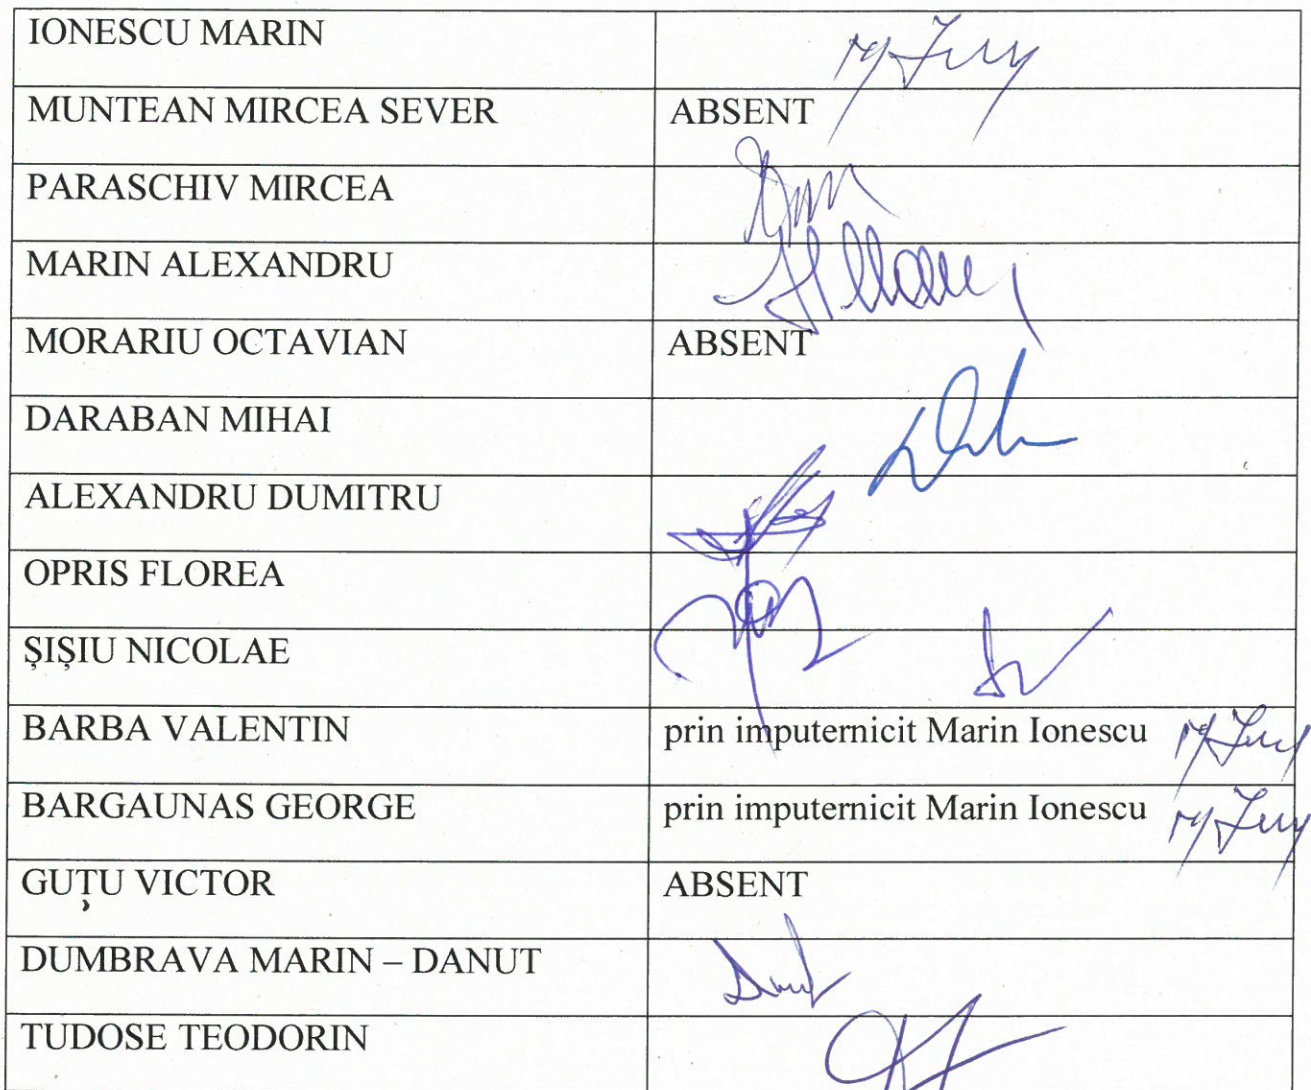 IONESCU MARIN
MUNTEAN MIRCEA SEVER ABSENT
PARASCHIV MIRCEA
MARIN ALEXANDRU
MORARIU OCTAVIAN ABSENT
DARABAN MIHAI
ALEXANDRU DUMITRU
OPRIS FLOREA
ȘIȘIU NICOLAE
BARBA VALENTIN prin imputernicit Marin Ionescu
BARGAUNAS GEORGE prin imputernicit Marin Ionescu
GUȚU VICTOR ABSENT
DUMBRAVA MARIN – DANUT
TUDOSE TEODORIN